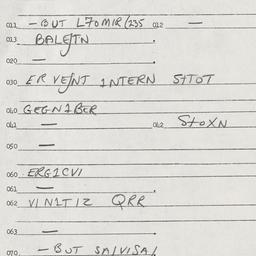 011 — BUT L70MIR/235 012 —
013 BALEJTN
020 —
030 ERVEJNT INTERN STTOT
040 GEGN1BER
041 — 042 STOXN
050 —
060 ERGICVI
061 —
062 VINITIZ QRR
063 —
070 — BUT SAIVISAI